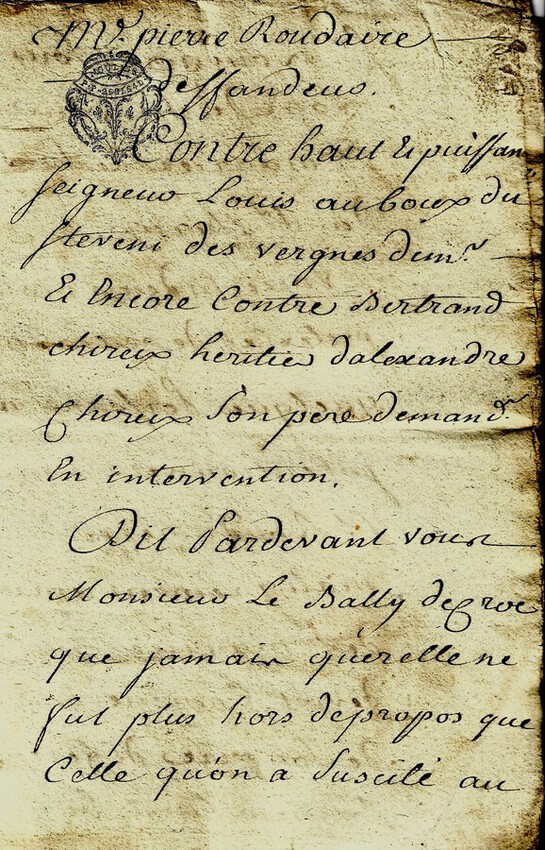 Mr. pierre Roudaire
deffandeur.
Contre haut & puissan
seigneur Louis auboux du
steveni des vergnes demr.
Et Encore Contre Bertrand
chireix heritier dalexandre
Chireix Son pere demandr.
En intervention.
Dit Pardevant vous
Monsieur Le Bally de Croc
que jamais querelle ne
fut plus hors depropos que
Celle qu'on a Suscité au